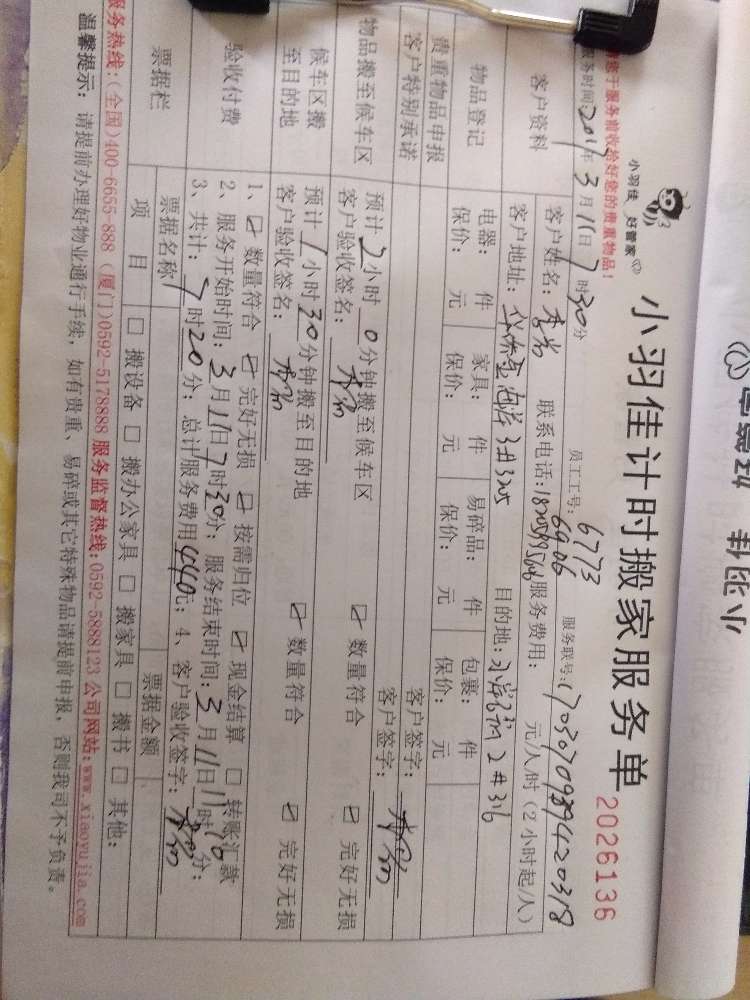 小羽佳 好管家
小羽佳计时搬家服务单
2026136
您于服务前收给好您的贵重物品!
服务时间:2017年3月11日7时30分 员工工号:6773 6906 服务联号:
客户资料
客户姓名: 联系电话: 服务费用: 元/人/时(2小时起/人)
客户地址: 3#325 目的地: 2#316
物品登记
电器: 件 家具: 件 易碎品: 件 包裹: 件
保价: 元 保价: 元 保价: 元 保价: 元
贵重物品申报
客户签字:
客户特别承诺
客户签字:
物品搬至候车区
预计2小时0分钟搬至候车区 ☑ 数量符合 ☑ 完好无损
客户验收签名:
候车区搬至目的地
预计1小时30分钟搬至目的地 ☑ 数量符合 ☑ 完好无损
客户验收签名:
验收付费
1、☑ 数量符合 ☑ 完好无损 ☑ 按需归位 ☑ 现金结算 □ 转账汇款
2、服务开始时间:3月11日7时30分; 服务结束时间:3月11日11时 分;
3、共计: 时20分; 总计服务费用440元; 4、客户验收签字:
票据栏
票据名称 票据金额
项 目 □ 搬设备 □ 搬办公家具 □ 搬家具 □ 搬书 □ 其他:
服务热线:(全国)400-6655-888 (厦门)0592-5178888 服务监督热线:0592-5888123 公司网站:www.xiaoyujia.com
温馨提示: 请提前办理好物业通行手续, 如有贵重、易碎或其它特殊物品请提前申报, 否则我司不予负责。